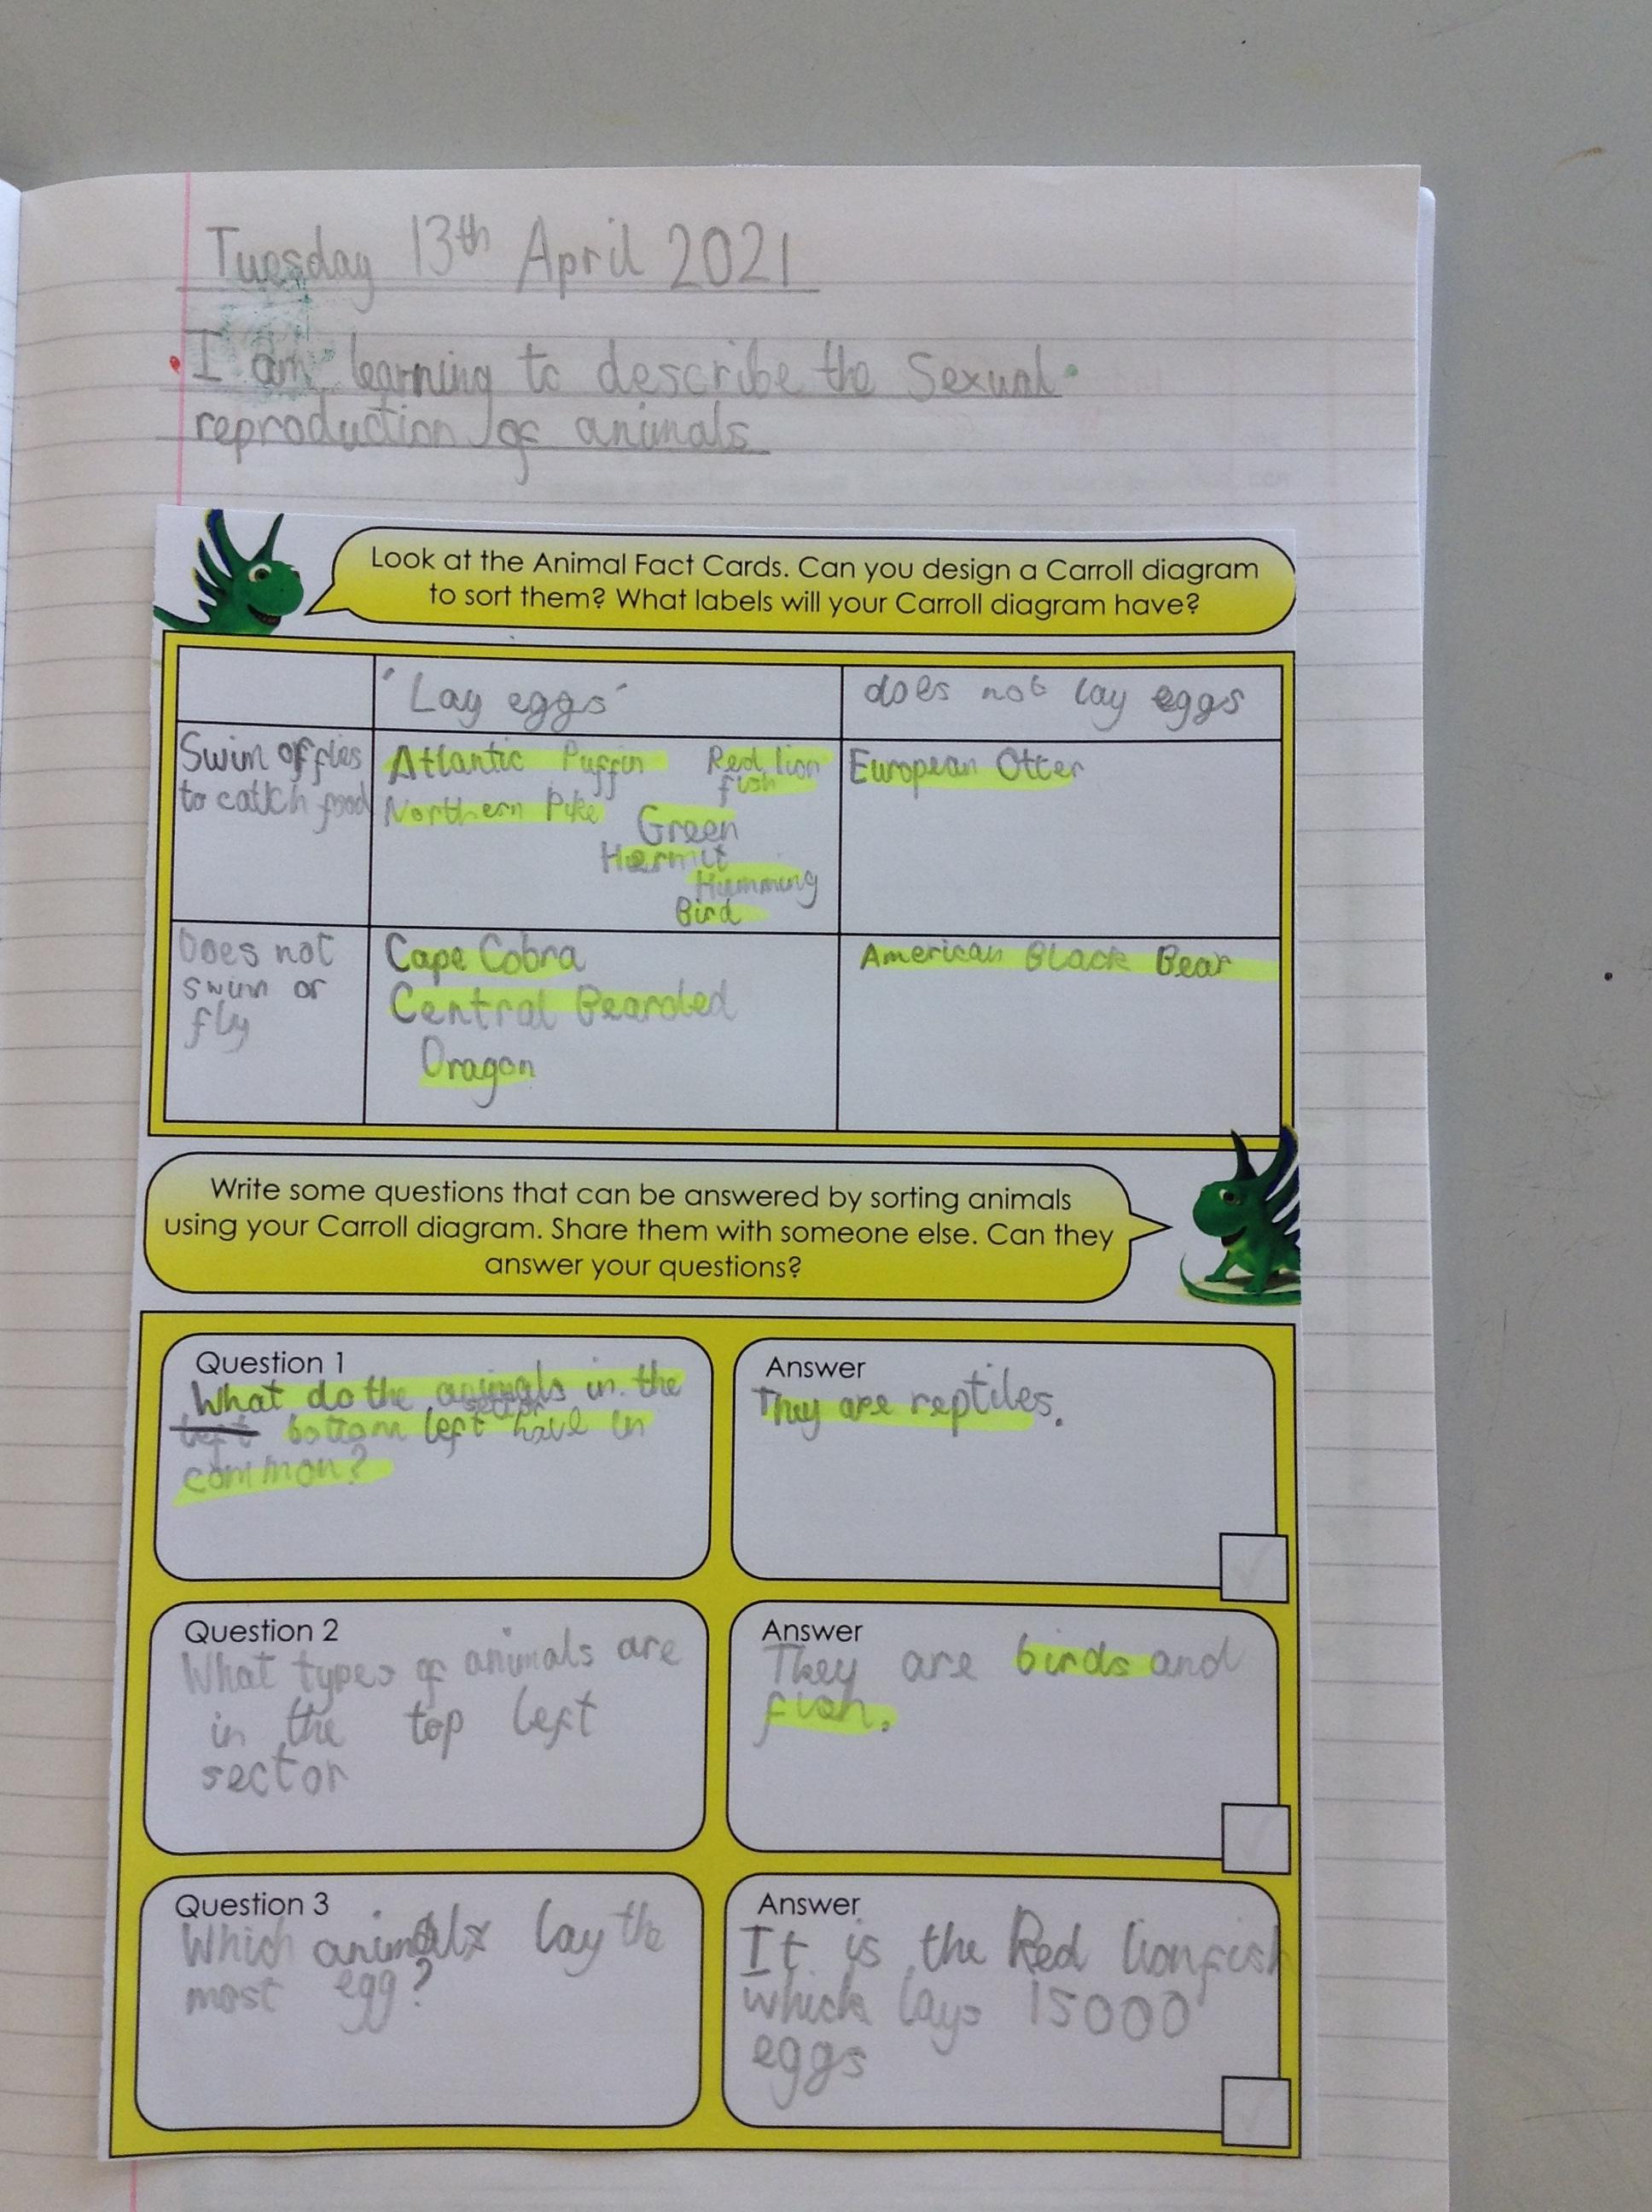 Tuesday 13th April 2021
I am learning to describe the Sexual
reproduction of animals
Look at the Animal Fact Cards. Can you design a Carroll diagram
to sort them? What labels will your Carroll diagram have?
'Lay eggs'
does not lay eggs
Swim or flies
to catch food
Atlantic Puffin
Northern Pike
Red lion
fish
Green
Hermit
Humming
Bird
European Otter
Does not
swim or
fly
Cape Cobra
Central Bearded
Dragon
American Black Bear
Write some questions that can be answered by sorting animals
using your Carroll diagram. Share them with someone else. Can they
answer your questions?
Question 1
What do the animals in the
sector
left bottom left have in
common?
Answer
They are reptiles.
Question 2
What types of animals are
in the top left
sector
Answer
They are birds and
fish.
Question 3
Which animals lay the
most egg?
Answer
It is the Red lionfish
which lays 15000
eggs